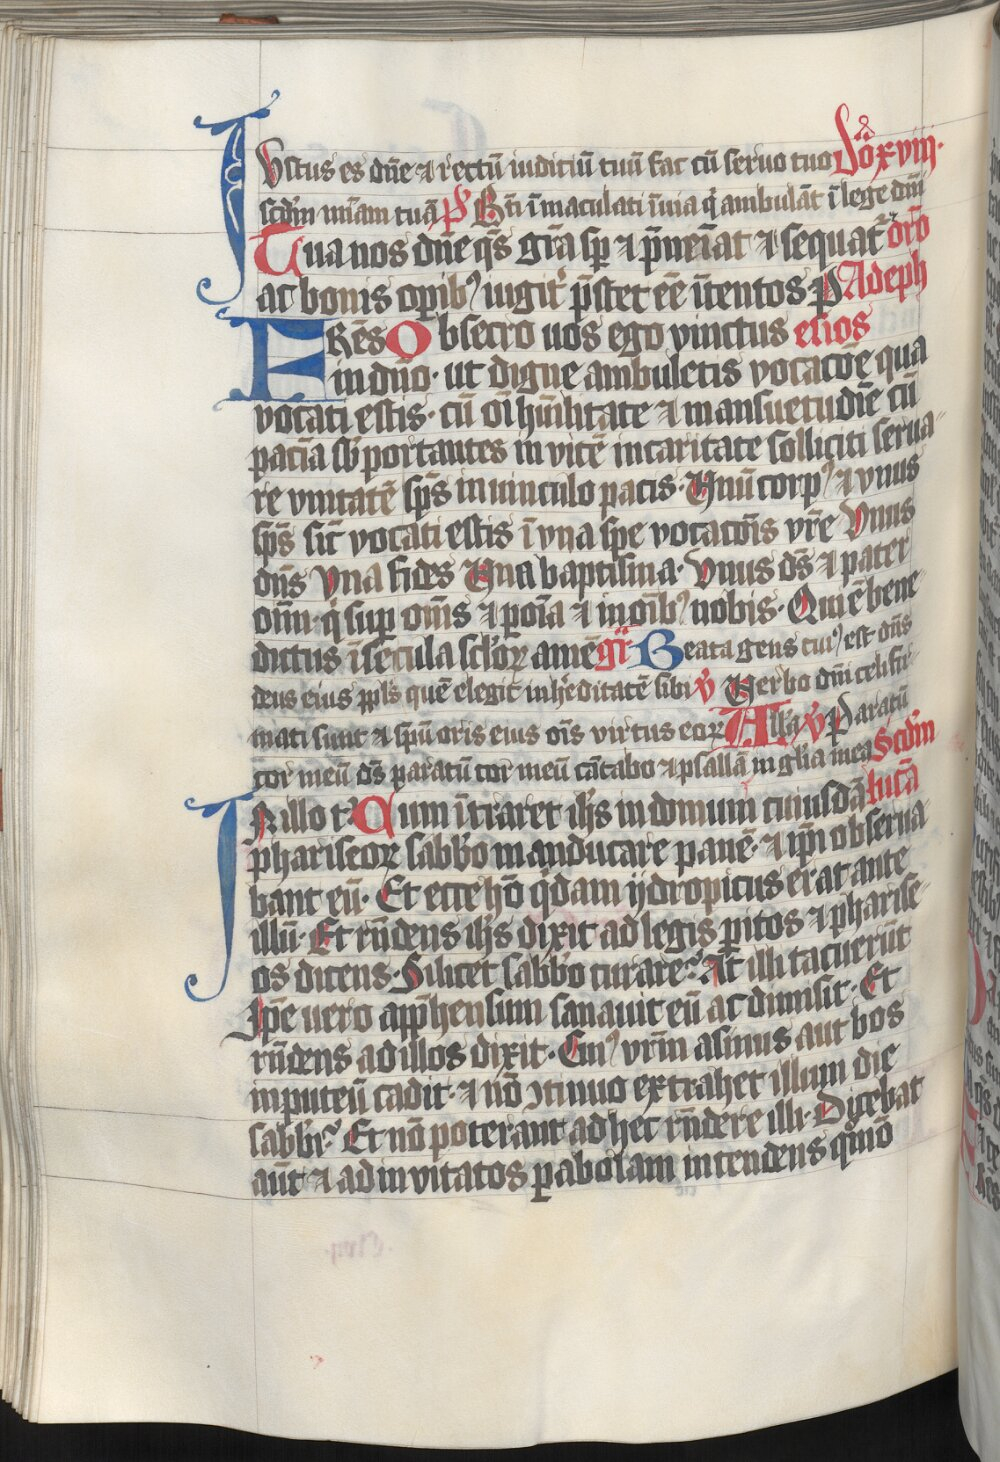 IVstus es dn̄e ⁊ rectū iudiciū tuū fac cū seruo tuo Dō xviij·
scd̄m mīam tuā p̄s Bt̄i īmaculati ī uia q̇ ambulāt ī lege dn̄i
Tua nos dn̄e q̄s gr̄a sp̄ ⁊ p̄ueīat ⁊ sequat᷑ dr̄o
ac bonis opib⁹ iugit᷑ p̄stet eē ītentos p̄ Ad eph
FRēs Obsecro uos ego vinctus esios
in dn̄o· ut digne ambuletis vocacōe qua
vocati estis· cū oī hūilitate ⁊ mansuetudīe cū
pacīa sb̄portantes in vicē in caritate solliciti serua-
re vnitatē sp̄s in uinculo pacis· Vnū corp⁹ ⁊ vnus
sp̄s sīc vocati estis ī vna spe vocacōis vr̄e Vnus
dn̄s Vna fides Vna baptisma· Vnus ds̄ ⁊ pater
om̄i· q̇ sup om̄s ⁊ p oīa ⁊ in oīb⁹ nobis· Qui ē bene-
dictus ī secula sclōꝝ amē gͬ Beata gens cui⁹ est dn̄s
deus eius ppl̄s quē elegit in h̓editatē sibi v̄ Verbo dn̄i celi fir-
mati sunt ⁊ spū oris eius oīs virtus eoꝝ All̄a v̄ Paratū
cor meū ds̄ paratū cor meū cātabo ⁊ psallā in gl̄ia mea Scd̄m
IN illo t᷑ Cum ītraret ih̄s in domum cuiusdā lucā
phariseoꝝ sabb̄o manducare panē· ⁊ ip̄i obserua-
bant eū· Et ecce hō q̇dam ydropicus erat ante
illū· Et rn̄dens ih̄s dixit ad legis p̱itos ⁊ pharise-
os dicens· Si licet sabb̄o curare? At illi tacuerūt
Ip̄e uero app̄hensum sanauit eū ac dimisit· Et
rn̄dens ad illos dixit· Cui⁹ vr̄m asinus aut bos
in puteū cadit· ⁊ nō ꝯtinuo extrahet illum die
sabb̄i? Et nō poterant ad hec rn̄dere illi· Dicebat
aūt ⁊ ad invitatos p̱abolam intendens quō